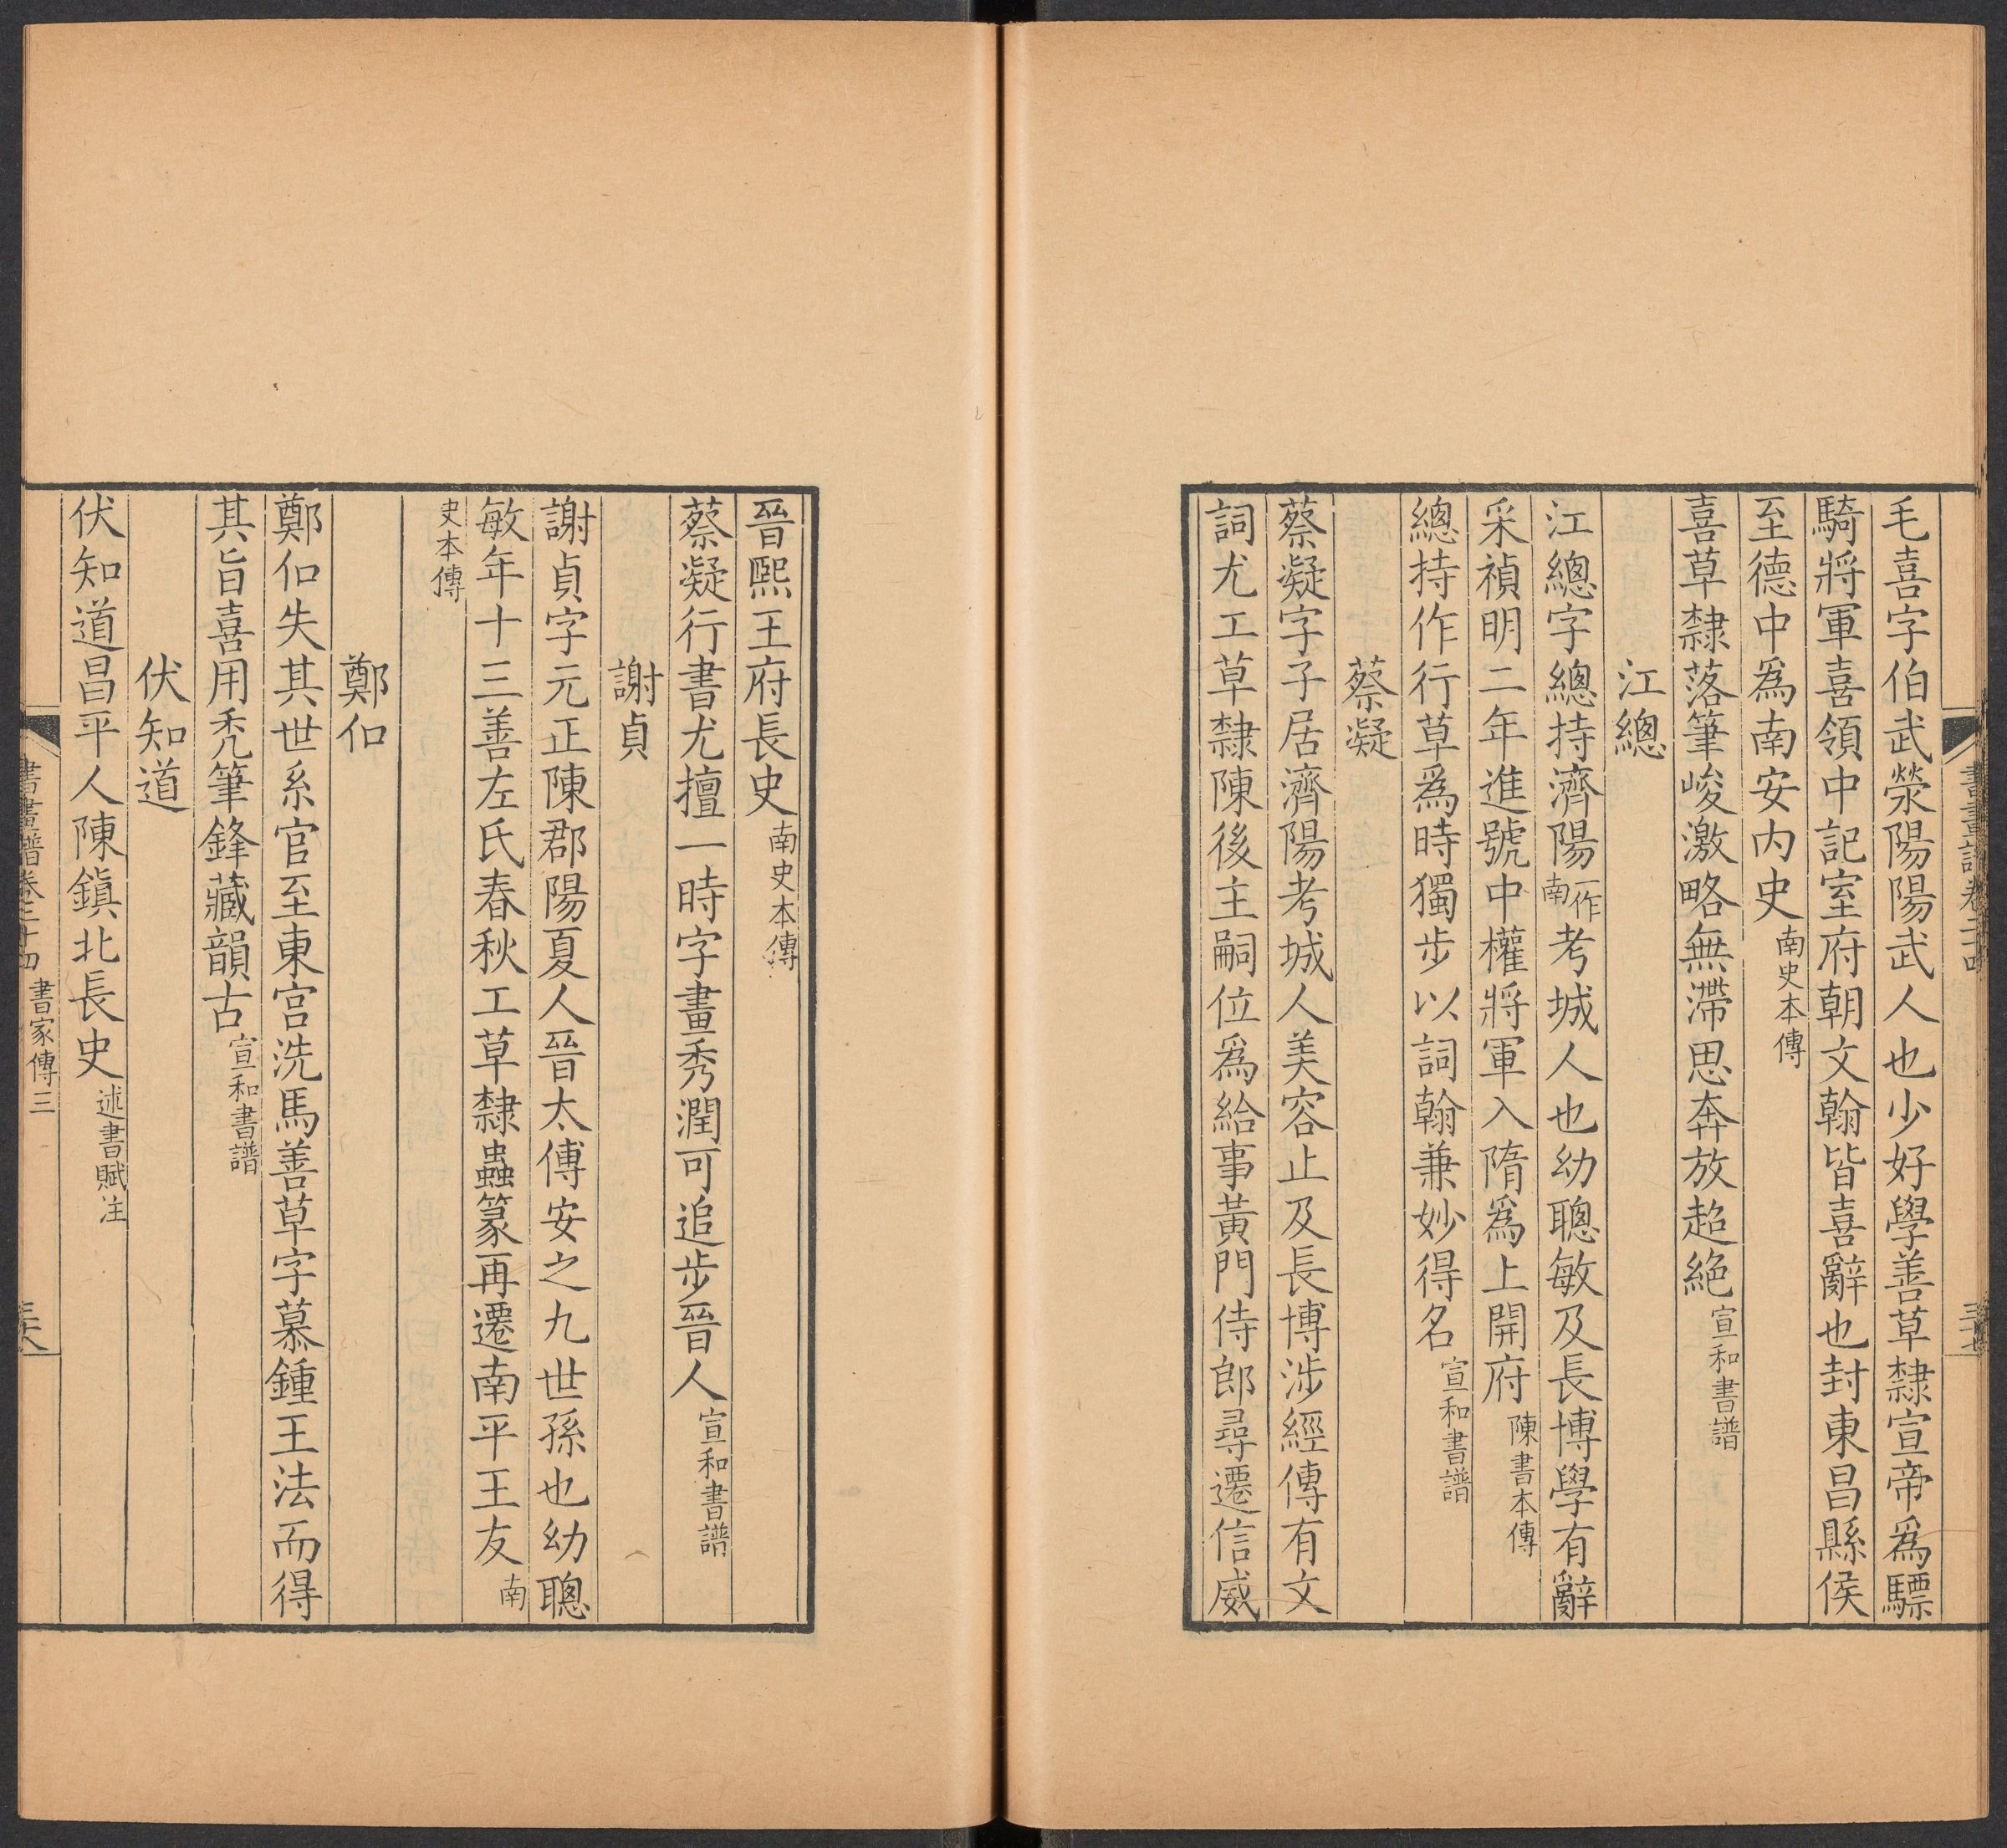 毛喜字伯武滎陽陽武人也少好學善草隸宣帝爲驃
騎將軍喜領中記室府朝文翰皆喜辭也封東昌縣侯
至德中爲南安内史南史本傳
喜草隸落筆峻激略無滯思奔放超絶宣和書譜
江總
江總字總持濟陽一作南考城人也幼聰敏及長博學有辭
采禎明二年進號中權將軍入隋爲上開府陳書本傳
總持作行草爲時獨步以詞翰兼妙得名宣和書譜
蔡凝
蔡凝字子居濟陽考城人美容止及長博涉經傳有文
詞尤工草隸陳後主嗣位爲給事黃門侍郎尋遷信威
晉熙王府長史南史本傳
蔡凝行書尤擅一時字畫秀潤可追步晉人宣和書譜
謝貞
謝貞字元正陳郡陽夏人晉太傅安之九世孫也幼聰
敏年十三善左氏春秋工草隸蟲篆再遷南平王友南
史本傳
鄭仚
鄭仚失其世系官至東宮洗馬善草字慕鍾王法而得
其旨喜用禿筆鋒藏韻古宣和書譜
伏知道
伏知道昌平人陳鎭北長史述書賦注
書畫譜卷二十四 書家傳三 三十八